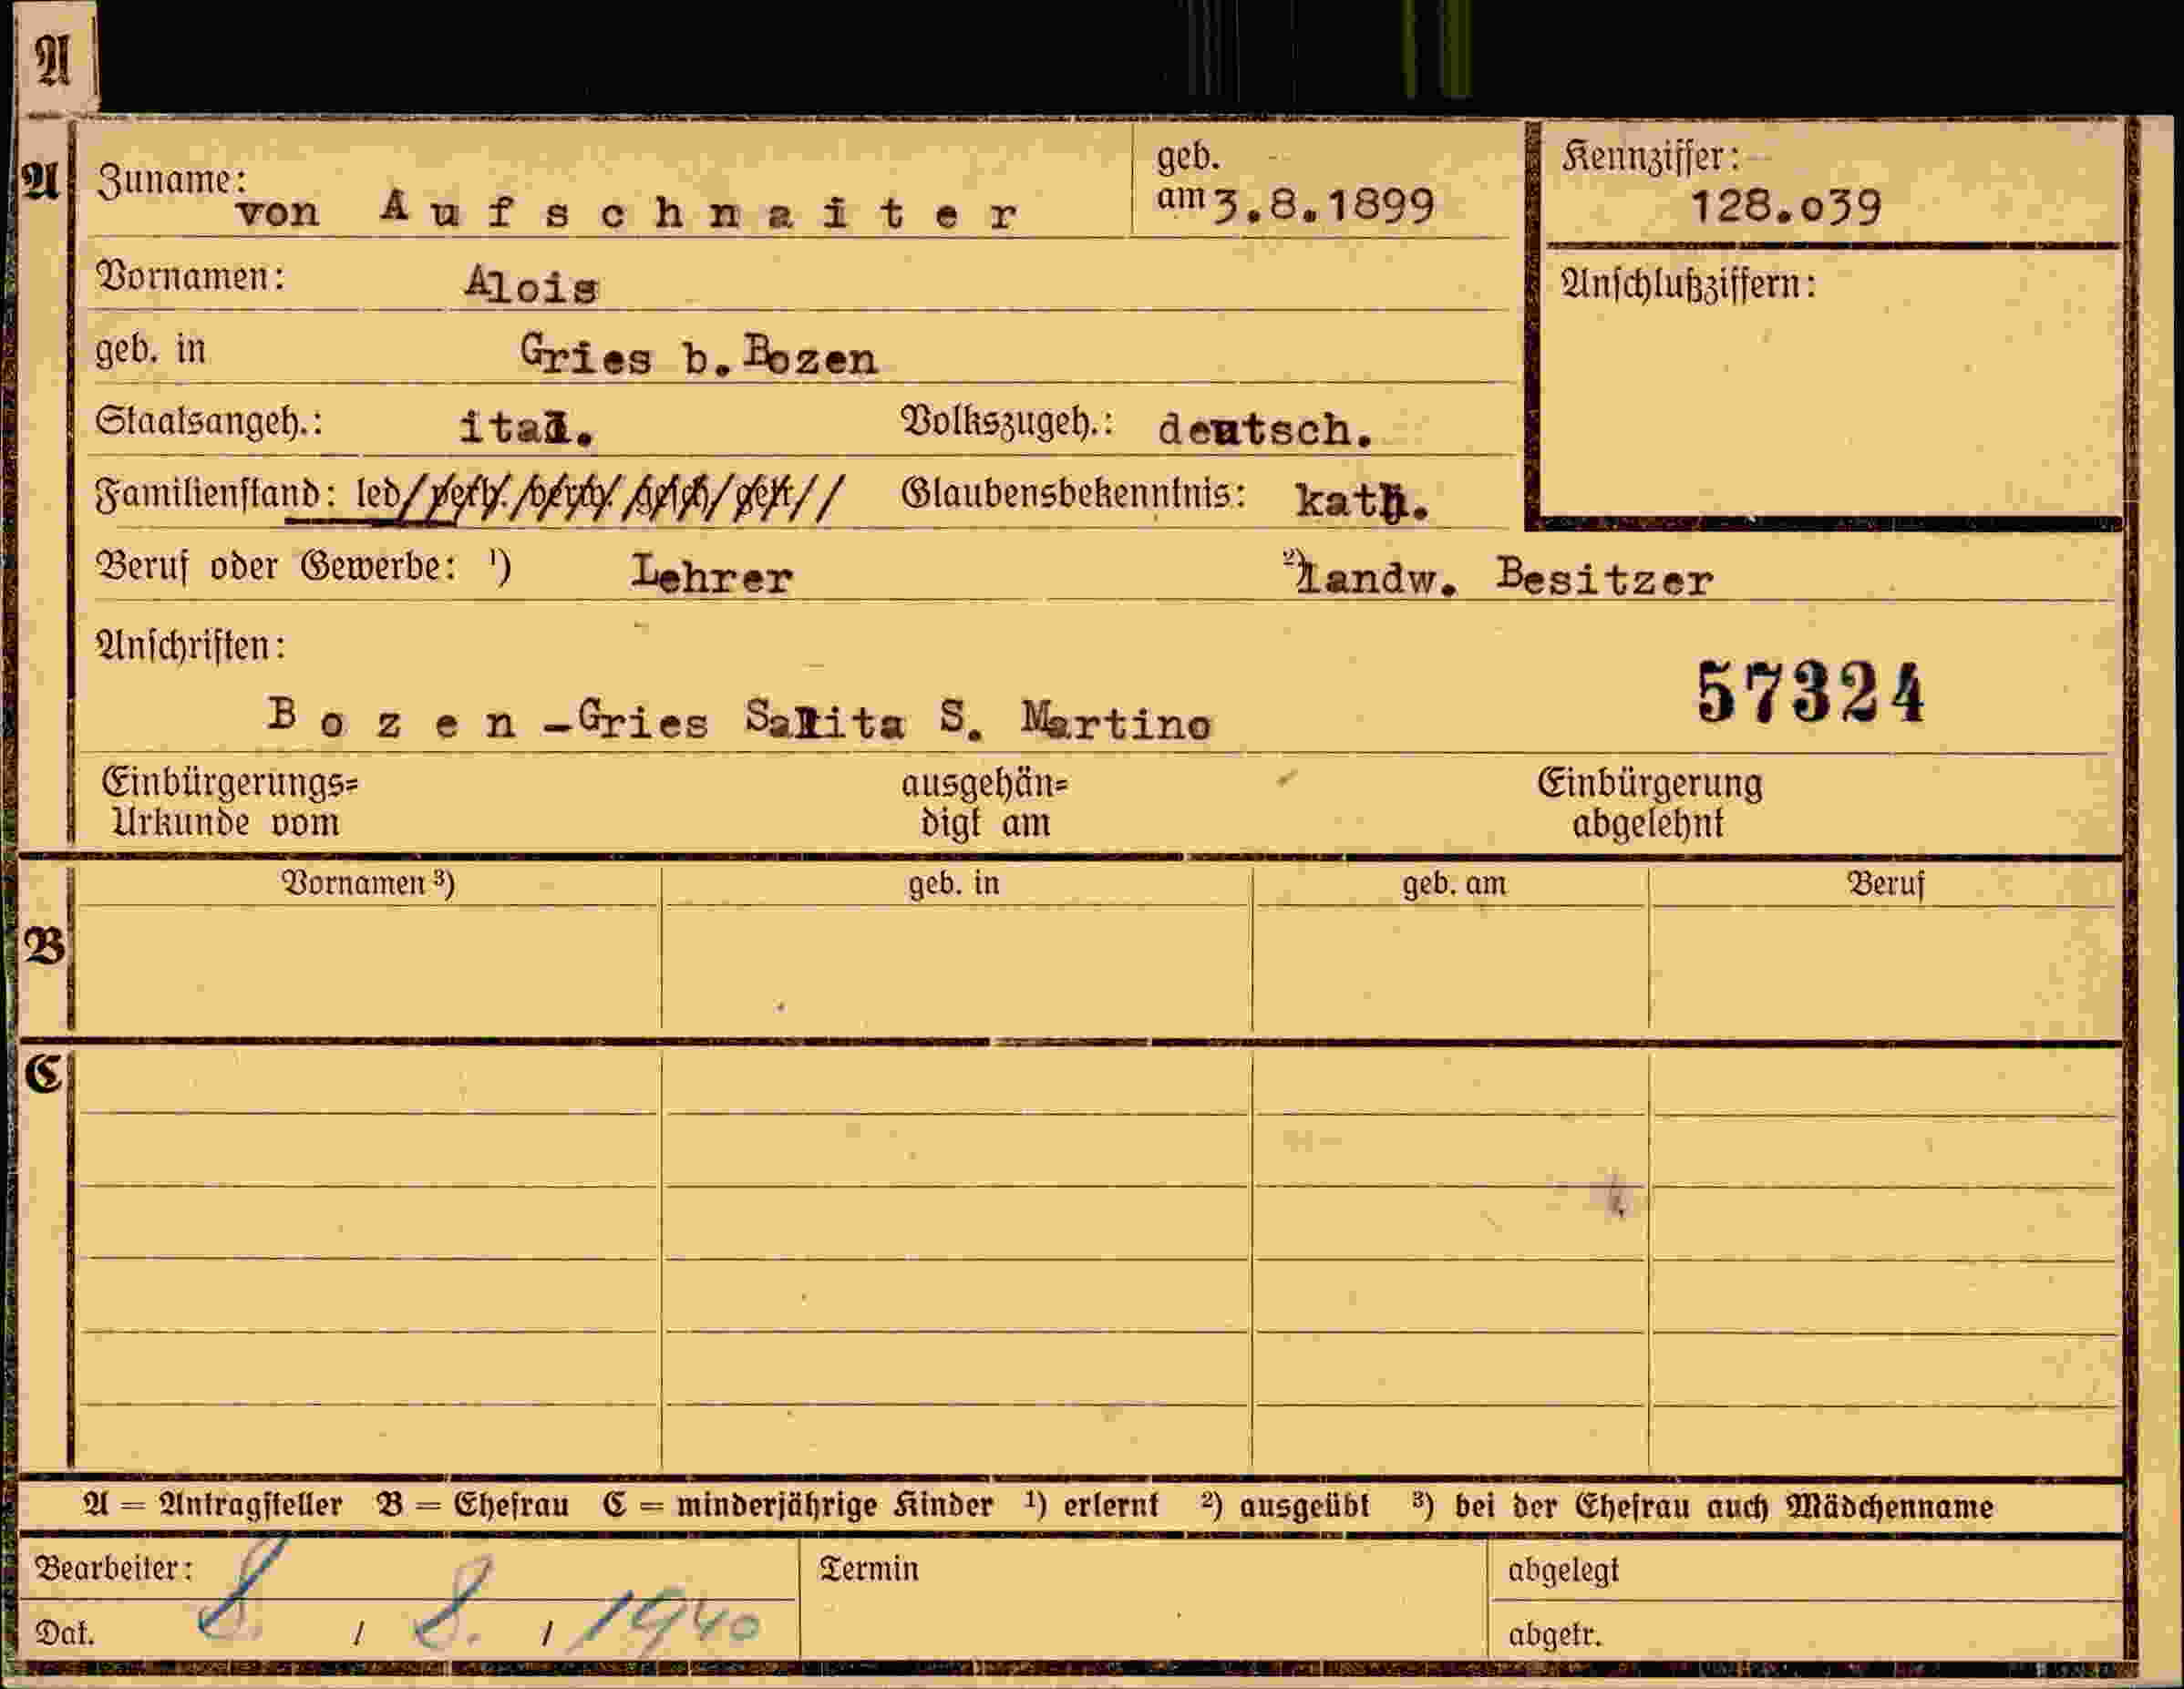 A
A
Zuname: von Aufschnaiter
geb. am 3.8.1899
Kennziffer: 128.o39
Vornamen: Alois
Anschlußziffern:
geb. in Gries b. Bozen
Staatsangeh.: ital. Volkszugeh.: deutsch.
Familienstand: led/ verh. /verw. /gesch/ getr// Glaubensbekenntnis: kath.
Beruf oder Gewerbe: ¹) Lehrer ²) landw. Besitzer
Anschriften:
57324
Bozen-Gries Salita S. Martino
Einbürgerungs= ausgehän= Einbürgerung
Urkunde vom digt am abgelehnt
Vornamen ³) geb. in geb. am Beruf
B
C
A = Antragsteller B = Ehefrau C = minderjährige Kinder ¹) erlernt ²) ausgeübt ³) bei der Ehefrau auch Mädchenname
Bearbeiter: Termin abgelegt
Dat. 8. / 8. / 1940 abgetr.